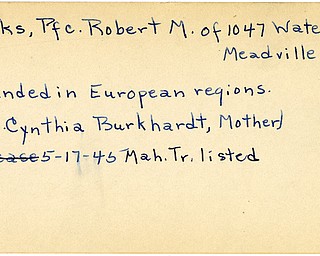 ks, Pfc. Robert M. of 1047 Wate
Meadville
nded in European regions.
Cynthia Burkhardt, Mother)
5-17-45 Mah. Tr. listed